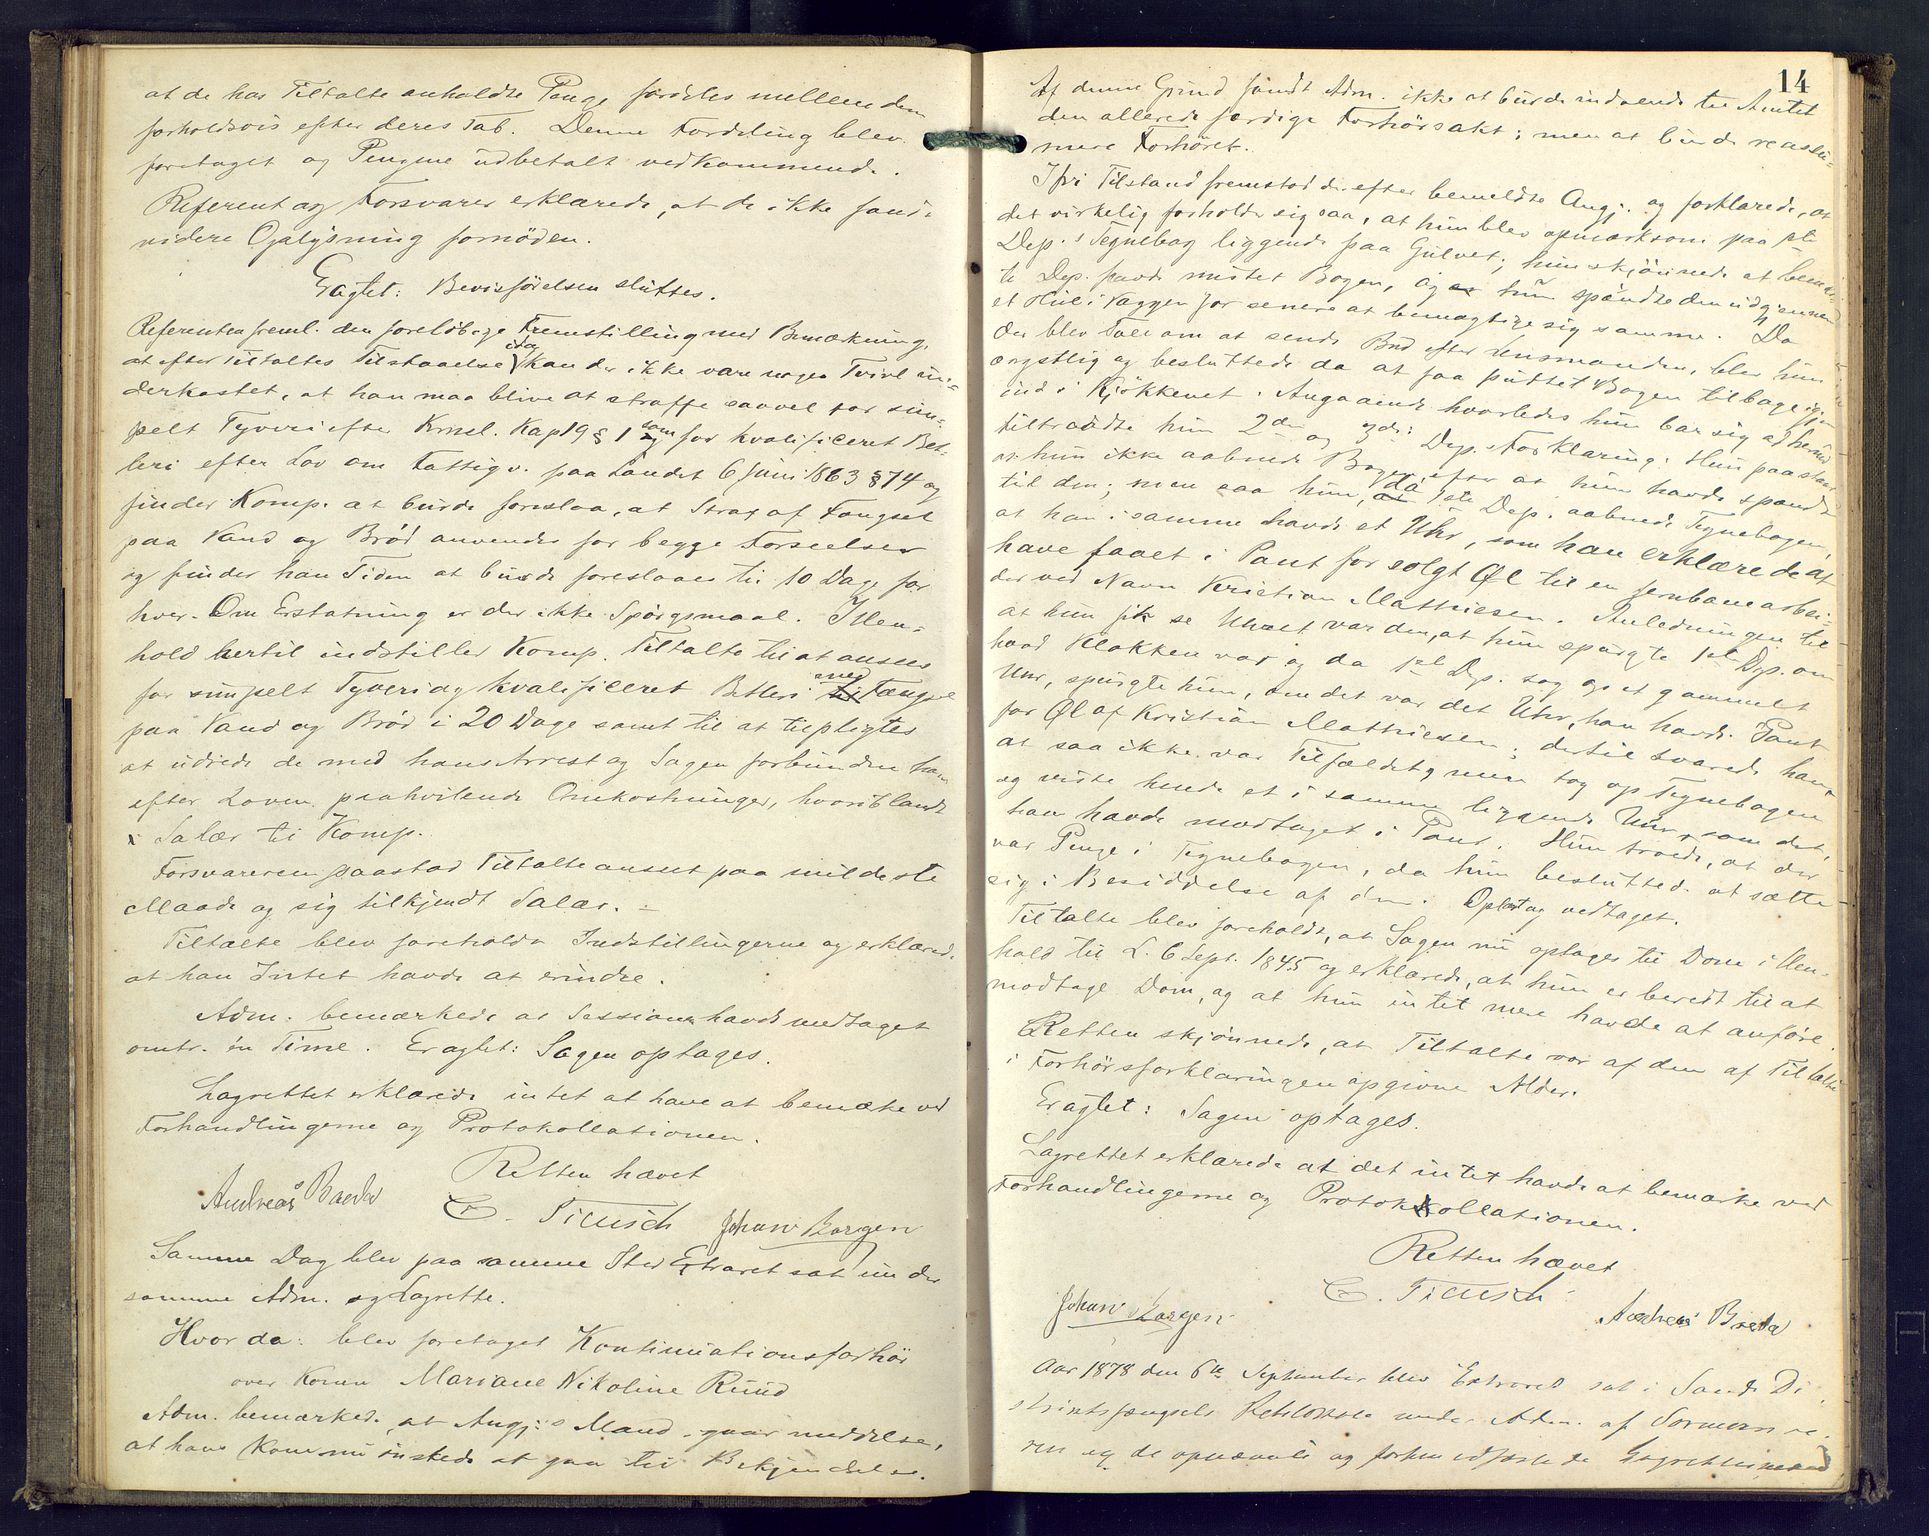 at de hos Tiltalte anholdte Penge fordeles mellem dem
forholdsvis efter deres Tab. Denne Fordeling blev
foretaget og Pengene udbetalt vedkommende.
Referent og Forsvarer erklærede, at de ikke fandt
videre Oplysning fornøden.
Eragtet: Bevisførelsen sluttes.
Referenten freml. den foreløbige Fremstilling med Bemærkning,
at efter Tiltaltes Tilstaaelse kan der ikke være nogen Tvivl un-
derkastet, at han maa blive at straffe saavel for sim-
pelt Tyveri efter Krml. Kap 19 § 1 som for kvalificeret Bet-
leri efter Lov om Fattigv. paa Landet 6 Juni 1863 § 74 og
finder Komp. at burde foreslaa, at Straf af Fængsel
paa Vand og Brød anvendes for begge Forseelser
og finder han Tiden at burde foreslaaes til 10 Dage for
hver. Om Erstatning er der ikke Spørgsmaal. I Hen-
hold hertil indstiller Komp. Tiltalte til at ansees
for simpelt Tyveri og kvalificeret Betleri med Fængsel
paa Vand og Brød i 20 Dage samt til at tilpligtes
at udrede de med hans Arrest og Sagen forbunden ham
efter Loven paahvilende Omkostninger, hvoriblandt
i Salær til Komp.
Forsvareren paastod Tiltalte anseet paa mildeste
Maade og sig tilkjendt Salær.
Tiltalte blev foreholdt Indstillingerne og erklærede
at han Intet havde at erindre.
Adm. bemærkede at Sessionen havde medtaget
omtr. én Time. Eragtet: Sagen optages.
Lagrettet erklærede intet at have at bemærke ved
Forhandlingerne og Protokollationen.
Retten hævet
Andreas Breda C. Tiensch Johan Borgen
Samme Dag blev paa samme Sted Extraret sat under
samme Adm. og Lagrette.
Hvor da: blev foretaget Kontinuationsforhør
over Konen Mariane Nikoline Ruud
Adm. bemærkede, at Angj:s Mand gaar meddelse,
at hans Kone nu ønskede at gaa til Bekjendelse.
14
Af denne Grund fandt Adm. ikke at burde indsende til Amtet
den allerede færdige Forhørsakt; men at burde reassu-
mere Forhøret.
I fri Tilstand fremstod derefter bemeldte Angj. og forklarede, at
det virkelig forholder sig saa, at hun blev opmærksom paa 1ste
Dep.s Tegnebog liggende paa Gulvet; hun skjønnede at bemeld-
te Dep. havde mistet Bogen, og hun spændte den ud gjennem
et Hul i Væggen for senere at bemægtige sig samme. Da
der blev Tale om at sende Bud efter Lensmanden, blev hun
ængstlig og besluttede da at faa puttet Bogen tilbage igjen
ind i Kjøkkenet. Angaaende hvorledes hun bar sig ad hermed
tiltraadte hun 2den og 3die Dep.s Forklaring. Hun paastaar
at hun ikke aabnede Bogen efter at hun havde spændt
til den; men saa hun, da 1ste Dep. aabnede Tegnebogen,
at han i samme havde et Uhr, som han erklærede at
have faaet i Pant for solgt Øl til en Jernbanearbei-
der ved Navn Kristian Matthiesen. Anledningen til
at hun fik se Uhret var den, at hun spurgte 1ste Dep. om
hvad Klokken var og da 1ste Dep. tog op et gammelt
Uhr, spurgte hun, om det var det Uhr, han havde i Pant
for Øl af Kristian Matthiesen; dertil svarede han,
at saa ikke var Tilfældet, men tog op Tegnebogen
og viste hende et i samme liggende Uhr, som det,
han havde modtaget i Pant. Hun troede, at der
var Penge i Tegnebogen, da hun besluttede at sætte
sig i Besiddelse af den. Oplæst og vedtaget.
Tiltalte blev foreholdt, at Sagen nu optages til Dom i Hen-
hold til L. 6 Sept. 1845 og erklærede, at hun er beredt til at
modtage Dom, og at hun intet mere havde at anføre.
Retten skjønnede, at Tiltalte var af den af Tiltalte
i Forhørsforklaringen opgivne Alder.
Eragtet: Sagen optages.
Lagrettet erklærede at det intet havde at bemærke ved
Forhandlingerne og Protokollationen.
Retten hævet
C. Tiensch
Johan Borgen Andreas Breda
Aar 1878 den 6te September blev Extraret sat i Sande Di-
striktsfængsels Retslokale under Adm. af Sorenskrive-
ren og de opnævnte og forhen edfæstede Lagrettesmænd